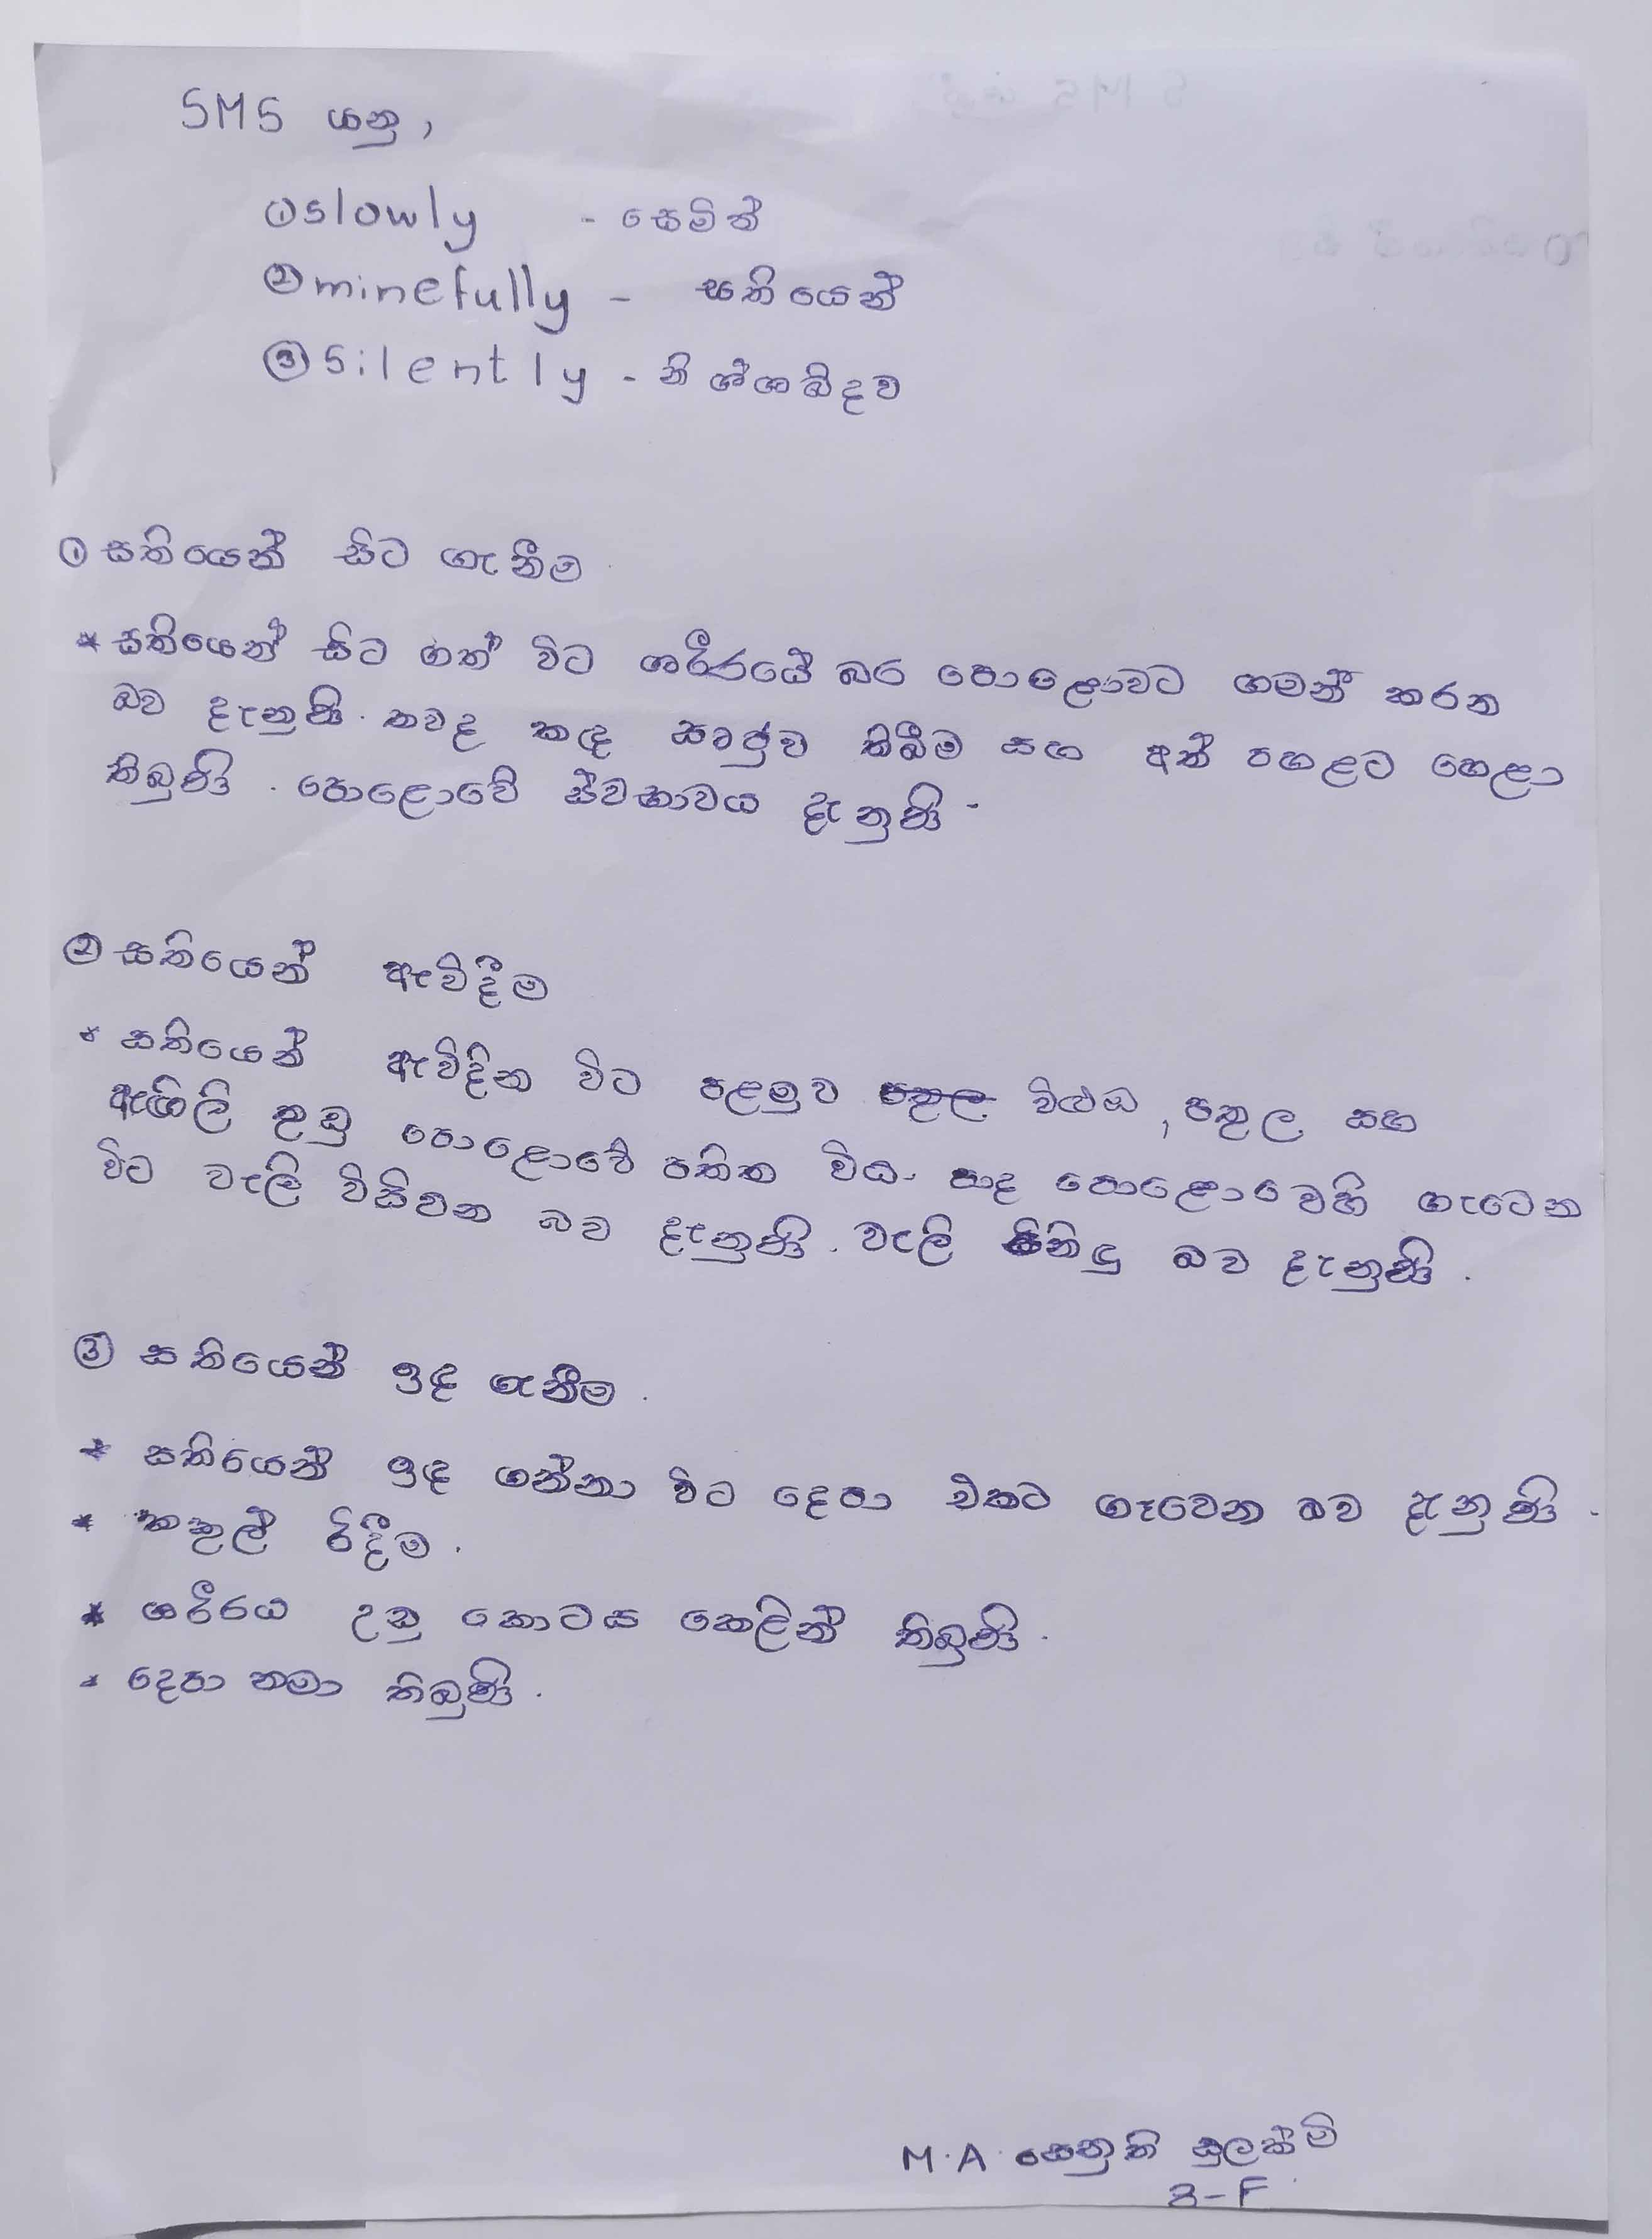 SMS යනු,
①slowly - සෙමින්
②minefully - සතියෙන්
③Silently - නිශ්ශබ්දව
① සතියෙන් සිට ගැනීම
* සතියෙන් සිට ගත් විට ශරීරයේ බර පොළොවට ගමන් කරන
බව දැනුණි. තවද කඳ සෘජුව තිබීම සහ අත් පහළට හෙළා
තිබුණි. පොළොවේ ස්වභාවය දැනුණි.
② සතියෙන් ඇවිදීම
* සතියෙන් ඇවිදින විට පළමුව පතුල විළුඹ, පතුල සහ
ඇඟිලි තුඩු පොළොවේ පතිත විය. පාද පොළොවෙහි ගැටෙන
විට වැලි විසිවන බව දැනුණි. වැලි සිනිඳු බව දැනුණි.
③ සතියෙන් ඉඳ ගැනීම.
* සතියෙන් ඉඳ ගන්නා විට දෙපා එකට ගෑවෙන බව දැනුණි.
* කකුල් රිදීම.
* ශරීරය උඩු කොටස කෙළින් තිබුණි.
* දෙපා නමා තිබුණි.
M.A. සෙනුති සුලක්මි
8-F